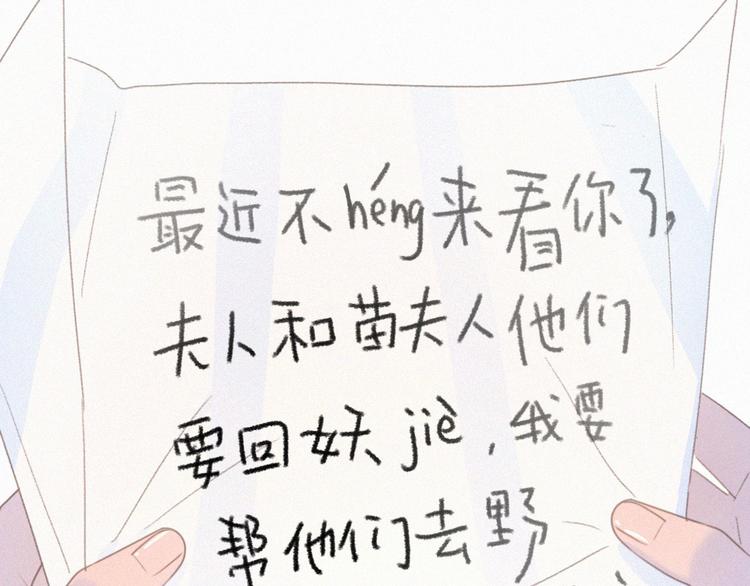 最近不héng来看你了,
夫人和苗夫人他们
要回妖jiè,我要
帮他们去野